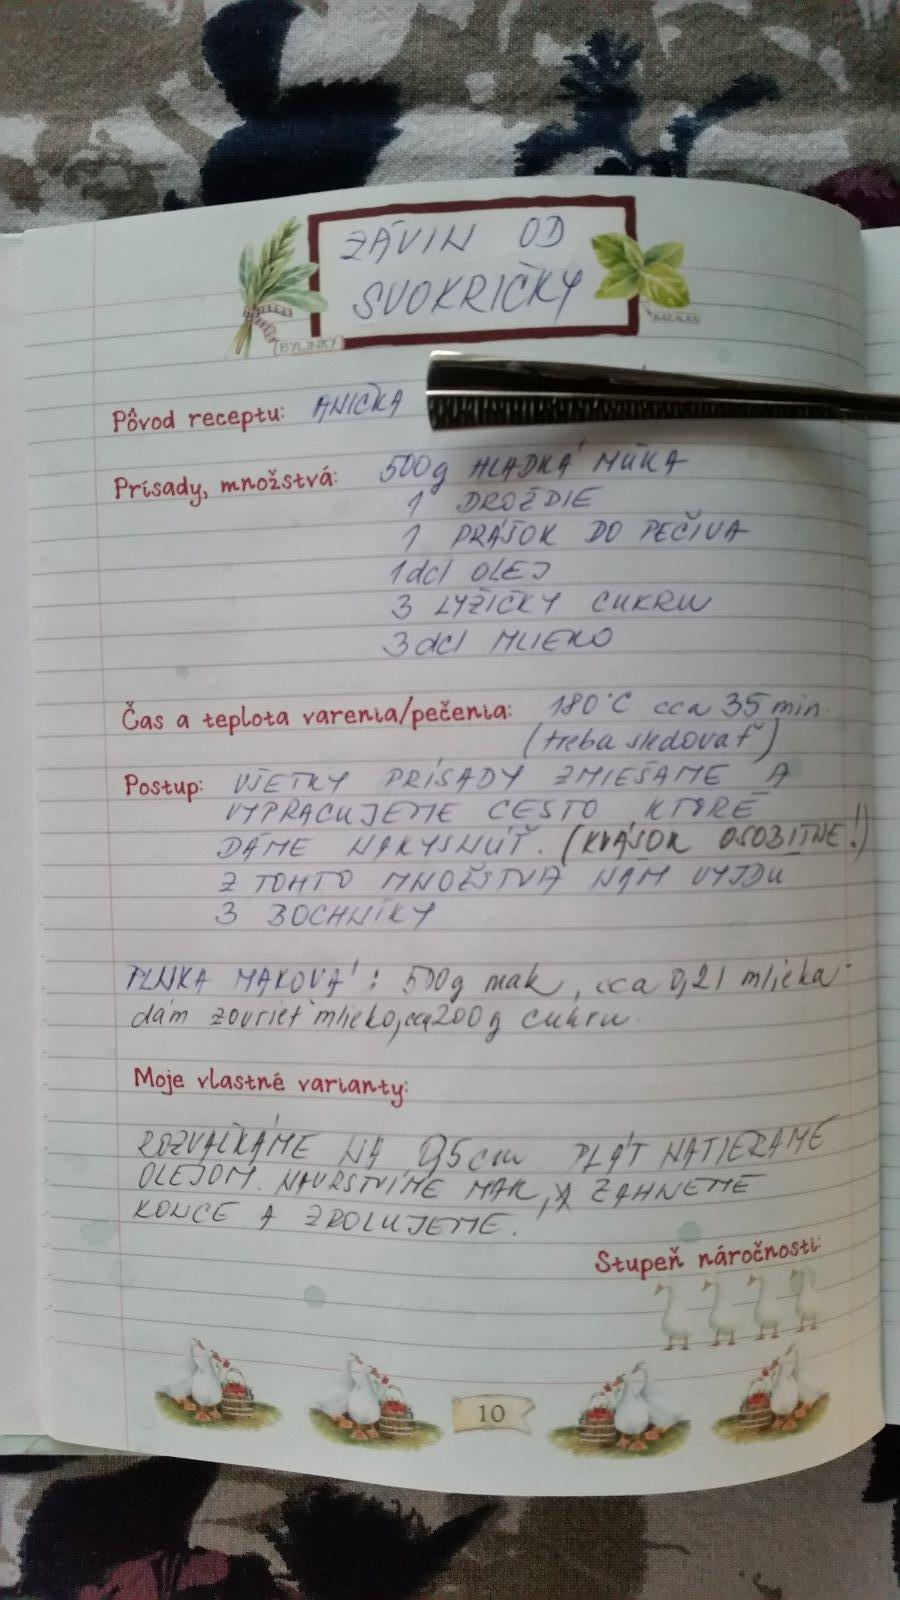 ZÁVIN OD
SVOKRIČKY
BYLINKY
BAZALKA
Pôvod receptu: ANIČKA
Prísady, množstvá: 500g HLADKÁ MÚKA
1 DROŽDIE
1 PRÁŠOK DO PEČIVA
1dcl OLEJ
3 LYŽIČKY CUKRU
3dcl MLIEKO
Čas a teplota varenia/pečenia: 180°C cca 35 min.
(treba sledovať)
Postup: VŠETKY PRÍSADY ZMIEŠAME A
VYPRACUJEME CESTO, KTORÉ
DÁME NAKYSNÚŤ. (KVÁSOK OSOBITNE!)
Z TOHTO MNOŽSTVA NÁM VYJDÚ
3 BOCHNÍKY
PLNKA MAKOVÁ: 500g mak, cca 0,2l mlieka
dám zovrieť mlieko, cca 200g cukru.
Moje vlastné varianty:
ROZVAĽKÁME NA 0,5cm PLÁT NATIERAME
OLEJOM. NAVRSTVÍME MAK, ZAHNEME
KONCE A ZROLUJEME.
Stupeň náročnosti:
10